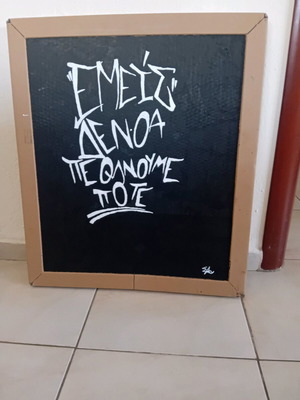 "ΕΜΕΙΣ"
ΔΕΝ ΘΑ
ΠΕΘΑΝΟΥΜΕ
ΠΟΤΕ